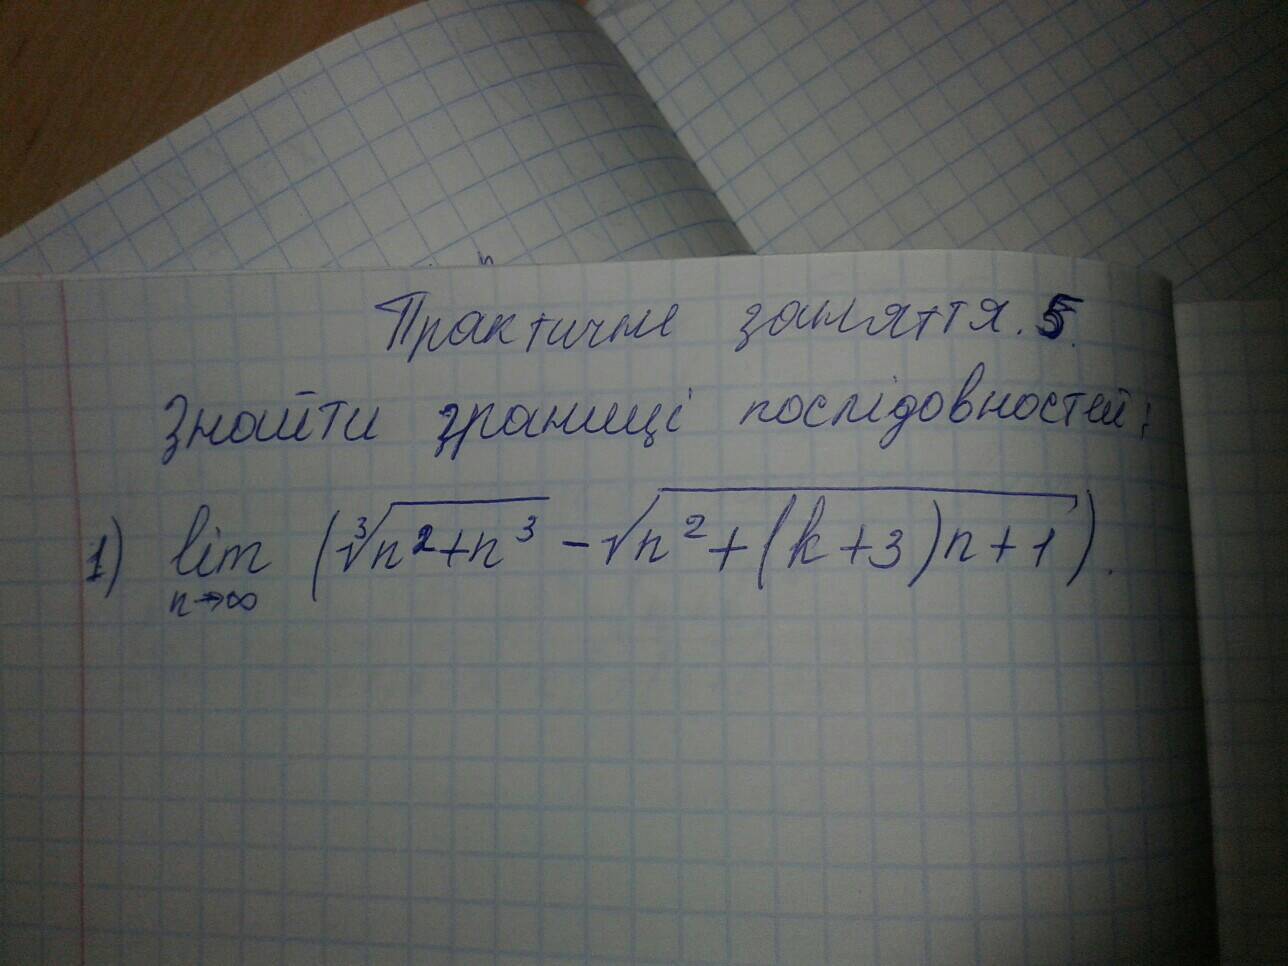 Практичне заняття. 5.
Знайти границі послідовностей:
1) lim (∛(n²+n³) - √(n²+(k+3)n+1)).
n→∞